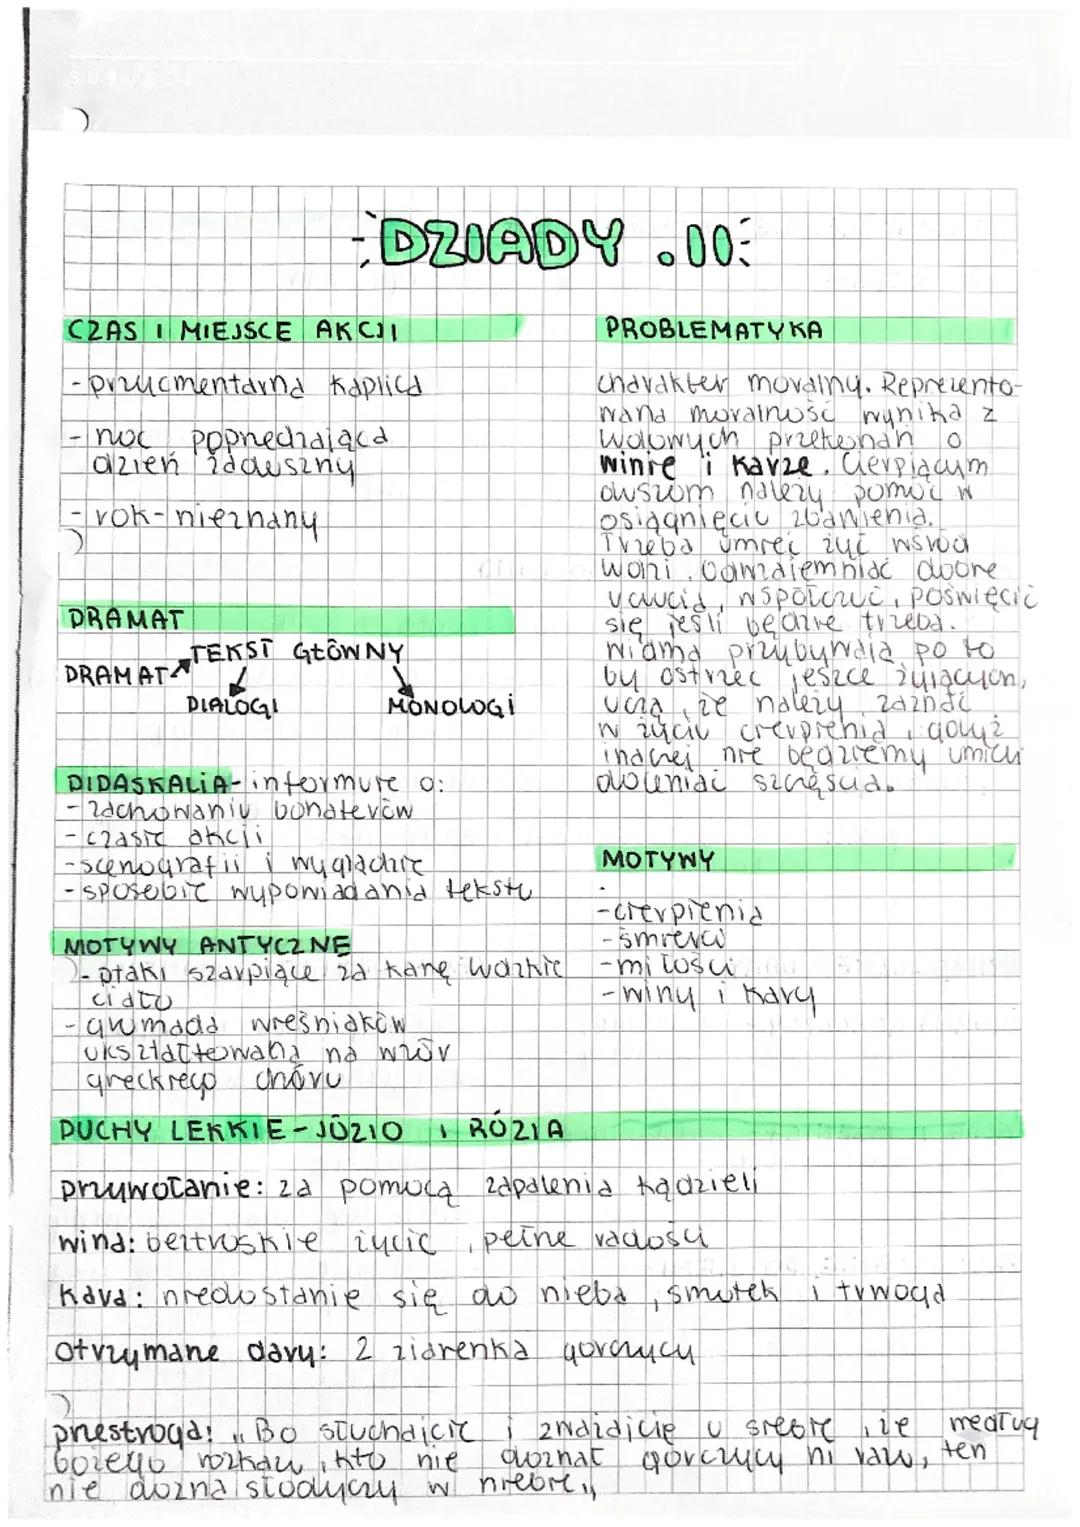 DZIADY .II
CZAS I MIEJSCE AKCJI
-przycmentarna kaplica
-noc poprzedzająca
dzień zaduszny
-rok-nieznany
DRAMAT
TEKST GŁÓWNY
DRAMAT
DIALOGI
MONOLOGI
DIDASKALIA-informure o:
-zachowaniu bohaterów
-czasie akcji
-scenografii i wyglądzie
-sposobie wypowiadania tekstu
MOTYWY ANTYCZNE
-ptaki szarpiące za karę ludzkie
ciało
-gromada wieśniaków
ukształtowana na wzór
greckiego chóru
PROBLEMATYKA
charakter moralny. Reprezento-
wana moralność wynika z
ludowych przekonań o
winie i karze. Cierpiącym
duszom należy pomóc w
osiągnięciu zbawienia.
Trzeba umieć żyć wśród
ludzi. Odwzajemniać dobre
uczucia, współczuć, poświęcić
się jeśli będzie trzeba.
widma przybywają po to
by ostrzec jeszcze żyjących,
uczą, że należy zaznać
w życiu cierpienia, gdyż
inaczej nie będziemy umieli
doceniać szczęścia.
MOTYWY
-cierpienia
-śmierci
-miłości
-winy i kary
DUCHY LEKKIE-JÓZIO I RÓZIA
przywołanie: za pomocą zapalenia kądzieli
wina: beztroskie życie, pełne radości
kara: niedostanie się do nieba, smutek i trwoga
otrzymane dary: 2 ziarenka gorczycy
przestroga: "Bo słuchajcie i zważcie u siebie, że według
bożego rozkazu, kto nie doznał gorczycy ni razu, ten
nie dozna słodyczy w niebie"